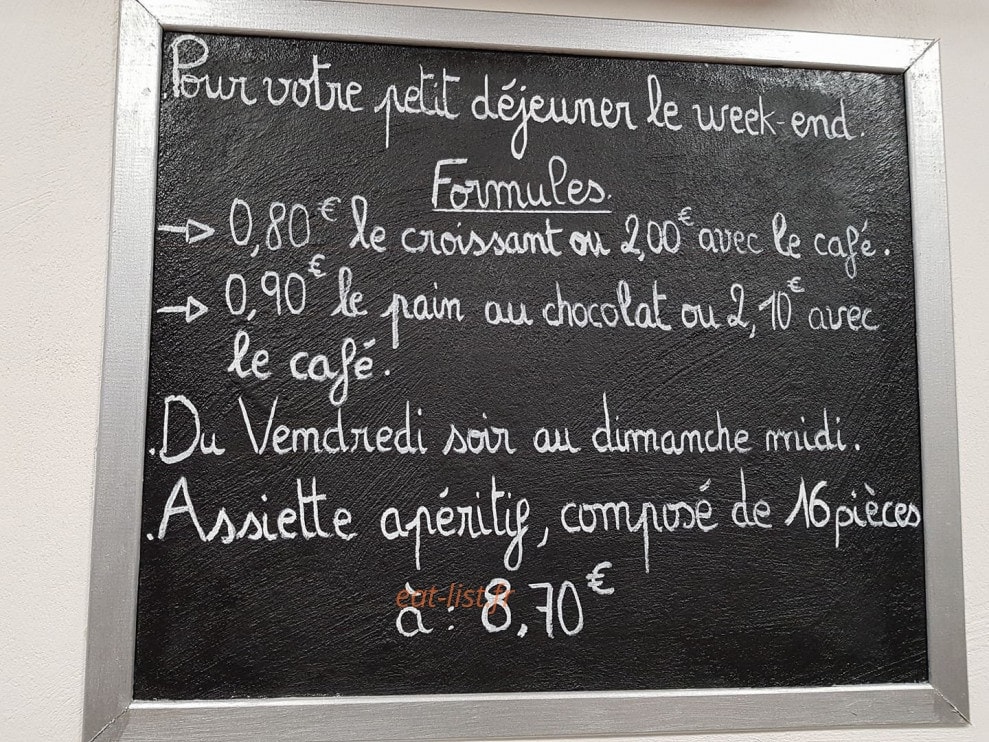 Pour votre petit déjeuner le week-end.
Formules.
→ 0,80€ le croissant ou 2,00€ avec le café.
→ 0,90€ le pain au chocolat ou 2,10€ avec
le café.
.Du Vendredi soir au dimanche midi.
.Assiette apéritif, composé de 16 pièces
à : 8,70€
eat-list.fr